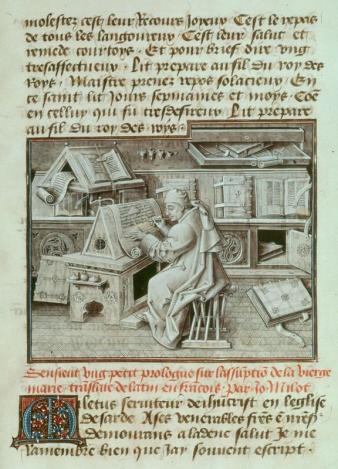 molestez cest leur Recours Joyeux Cest le repas
de tous les langoureux Cest leur salut et
remede courtoys · Et pour brief dire ung
tresaffectueux · Lit prepare au filz du roy des
Roys · Maistre prenez repos solacieux · En
ce saint lit Jours sepmaines et moys · Cõe
en celluy qui fu tresdesireux · Lit prepare
au filz du roy des roys ·
Sensieut ung petit prologue sur lassũption de la vierge
marie translate de latin en francois · Par Jo Mielot
Miletus serviteur de ihũcrist en leglise
de sarde A ses venerables freres
demourans a ladene salut Je me
ramembre bien que Jay souvent escript ·